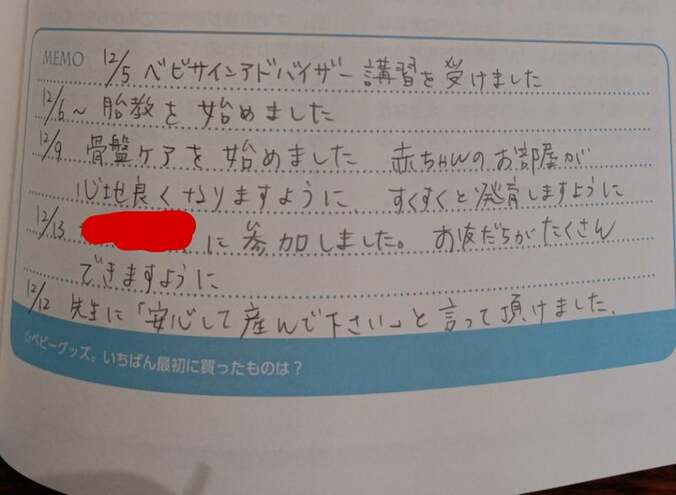 MEMO 12/5 ベビサインアドバイザー講習を受けました
12/6~ 胎教を始めました
12/9 骨盤ケアを始めました 赤ちゃんのお部屋が
心地良くなりますように、すくすくと発育しますように
12/13 に参加しました。お友だちがたくさん
できますように
12/12 先生に「安心して産んで下さい」と言って頂けました.
☆ベビーグッズ。いちばん最初に買ったものは？